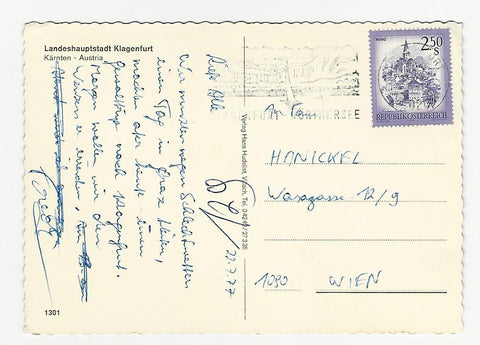 Landeshauptstadt Klagenfurt
Kärnten - Austria
Liebe Alle
Wir mussten wegen Schlechtwetter
einen Tag in Graz bleiben,
machten aber heute einen
nach Klagenfurt.
Morgen wollen wir den
erreichen,
22.7.77
1301
Verlag Hans Hudelist, Villach, Tel. 04242/27335
WÖRTHERSEE
2.50
S
REPUBLIK ÖSTERREICH
An Fam.
HANICKEL
Wasagasse 12/9
1090 WIEN